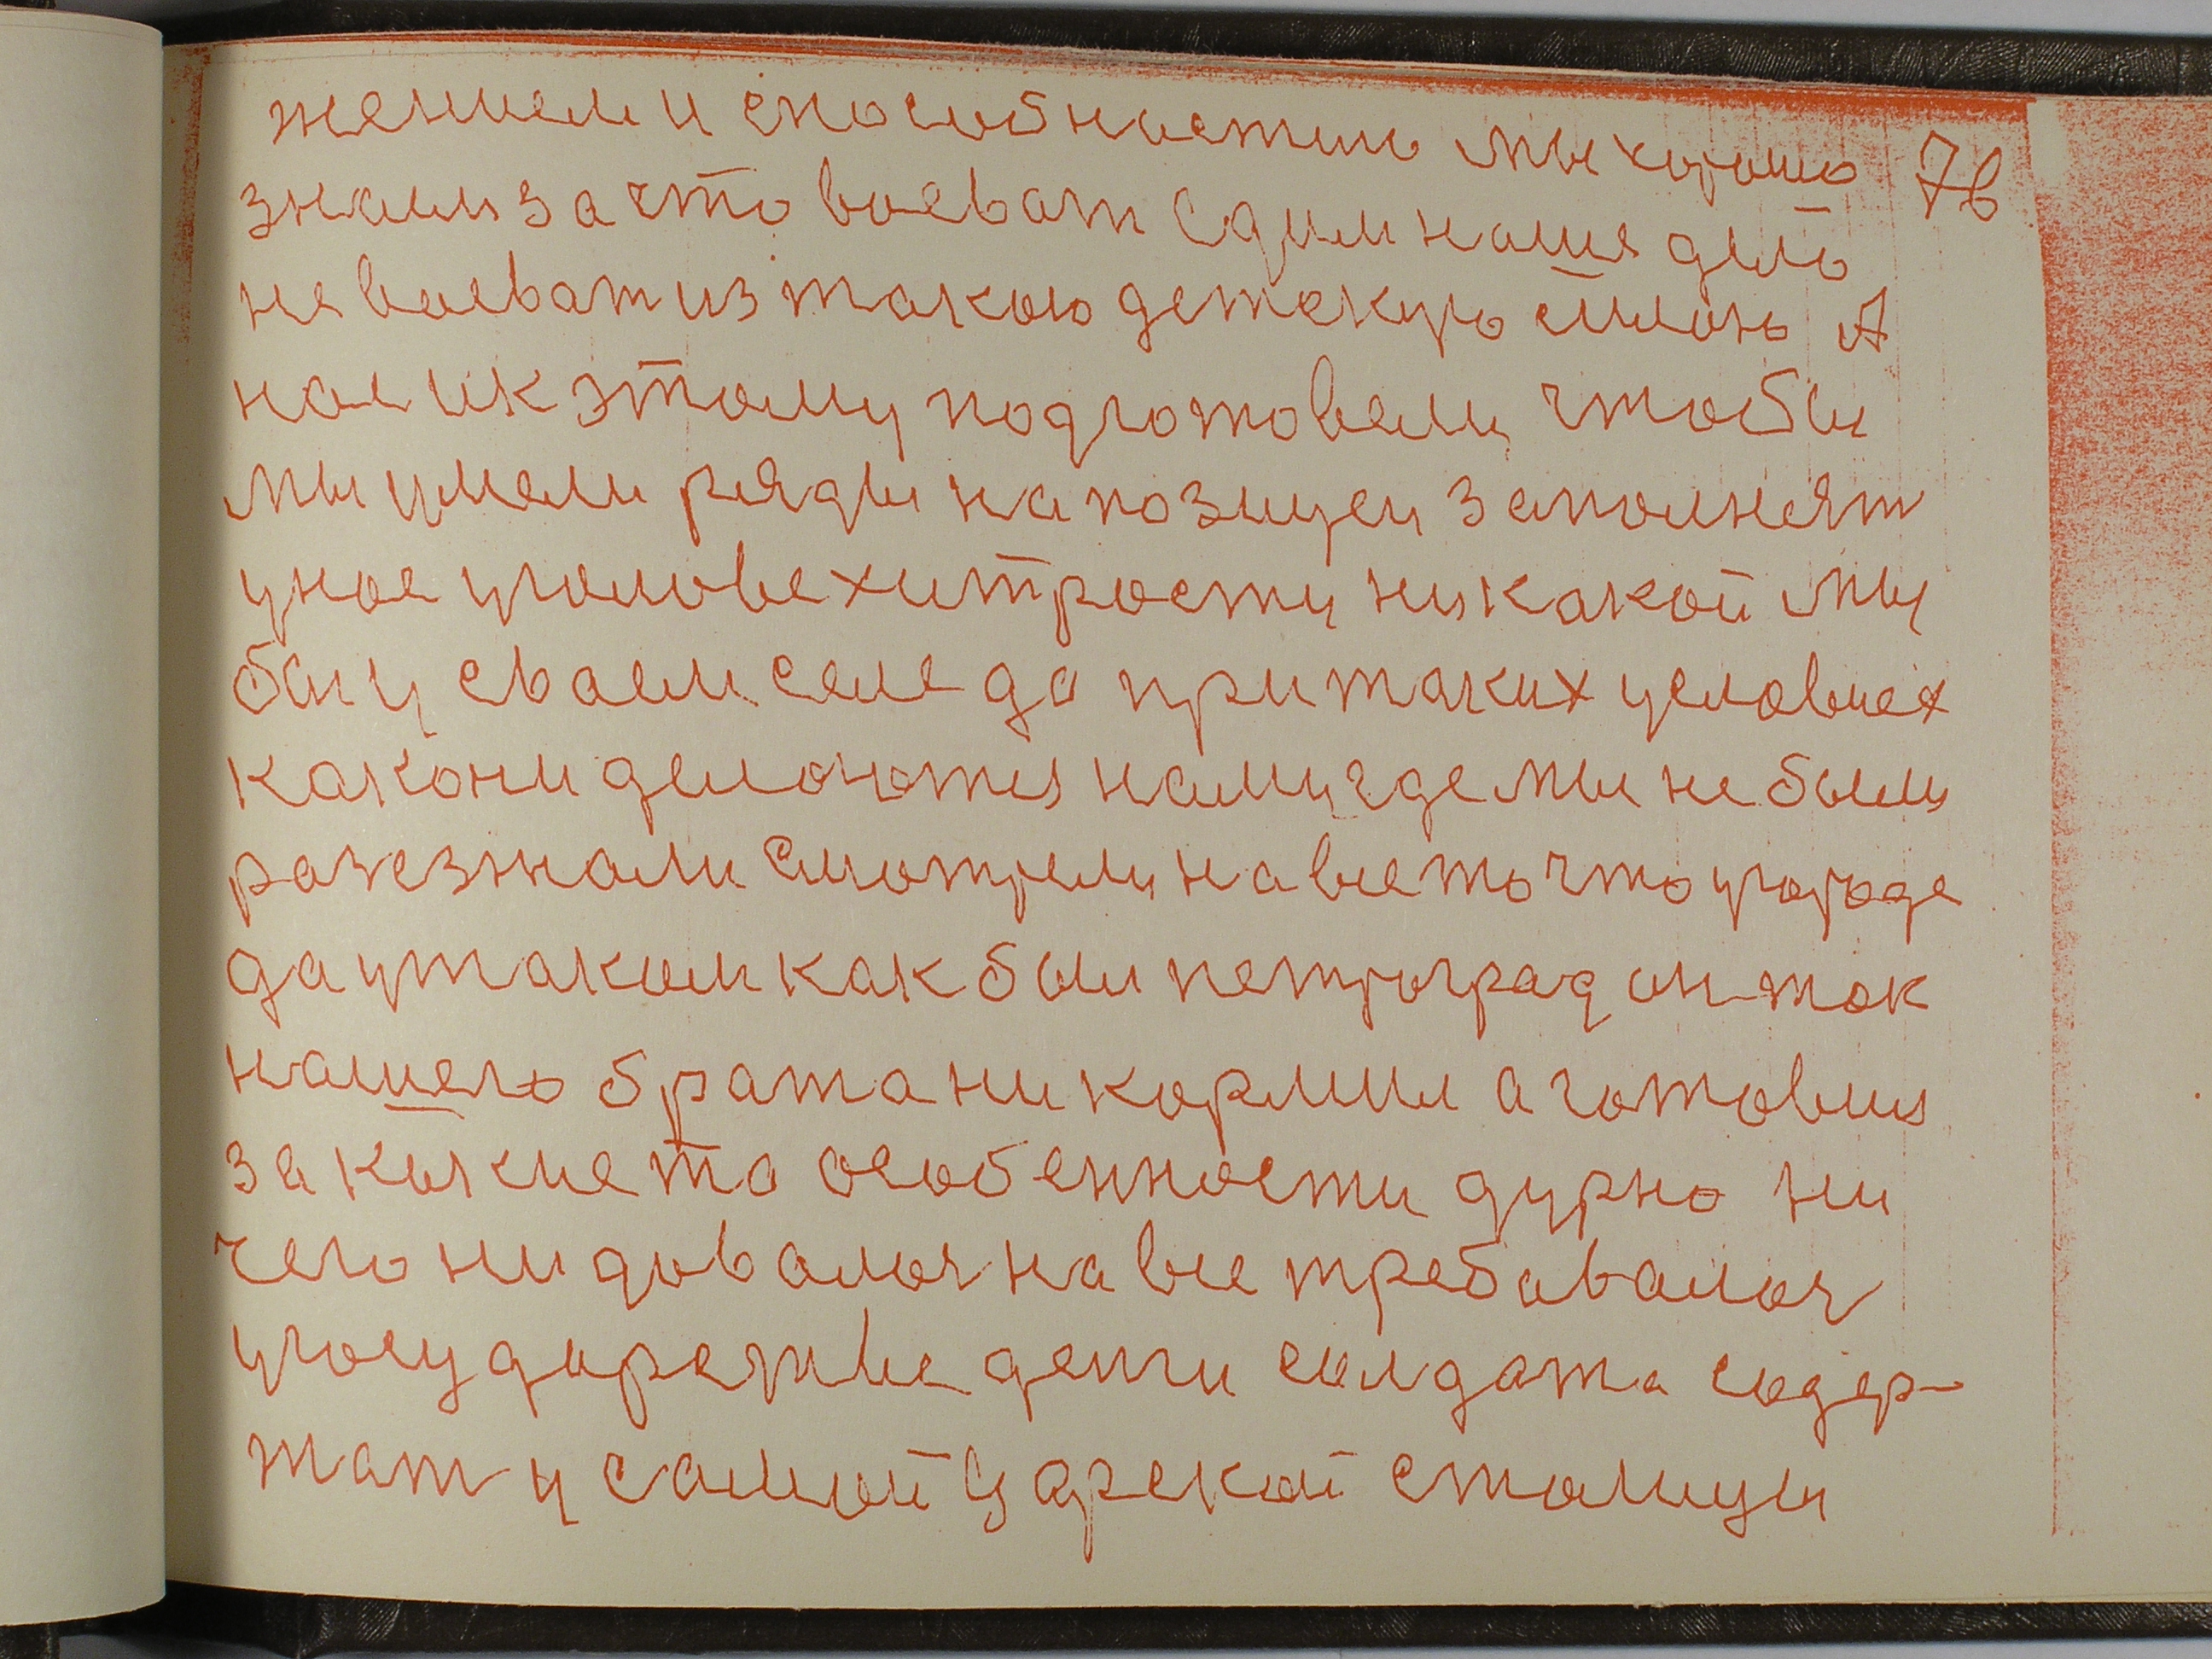 жением и способностию мы хорошо 7в
знаем за что воеват Едим наше дело
не воеват из такою детскую силою А
нас ик этому подготовели чтобы
мы умели ряды на позицеи заполнят
унас уголове хитрости ни какой мы
бы у своем селе да при таких условиех
как они делоются нами где мы не были
разезжали смотрели на все то что угороде
да утаком как был петроград он так
нашего брата ни кормил а готовил
за какие то особенности дурно ни
чего ни довалося на все требавалося
угосударстве денги солдата содер-
жат у самой царской столицы